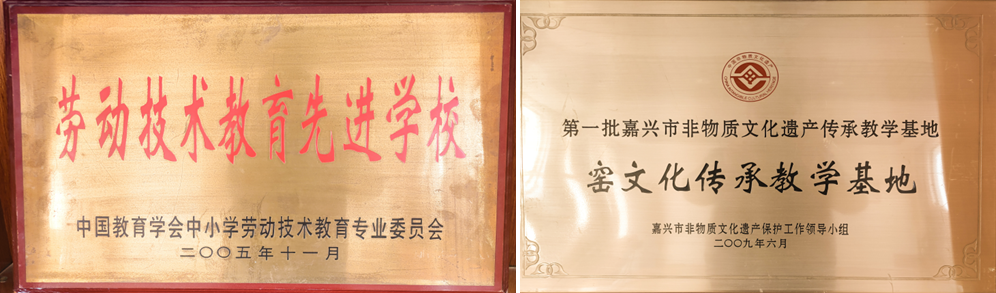 劳动技术教育先进学校
中国教育学会中小学劳动技术教育专业委员会
二〇〇五年十一月
第一批嘉兴市非物质文化遗产传承教学基地
窑文化传承教学基地
嘉兴市非物质文化遗产保护工作领导小组
二〇〇九年六月